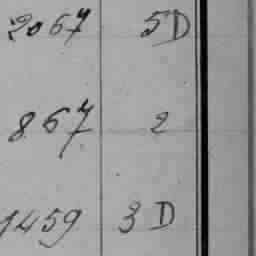 2067 5D
867 2
1459 3D